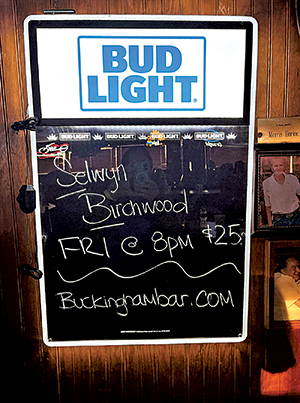 BUD
LIGHT
BUD LIGHT BUD LIGHT BUD LIGHT
Selwyn
Birchwood
FRI @ 8PM $25
Buckinghambar.COM